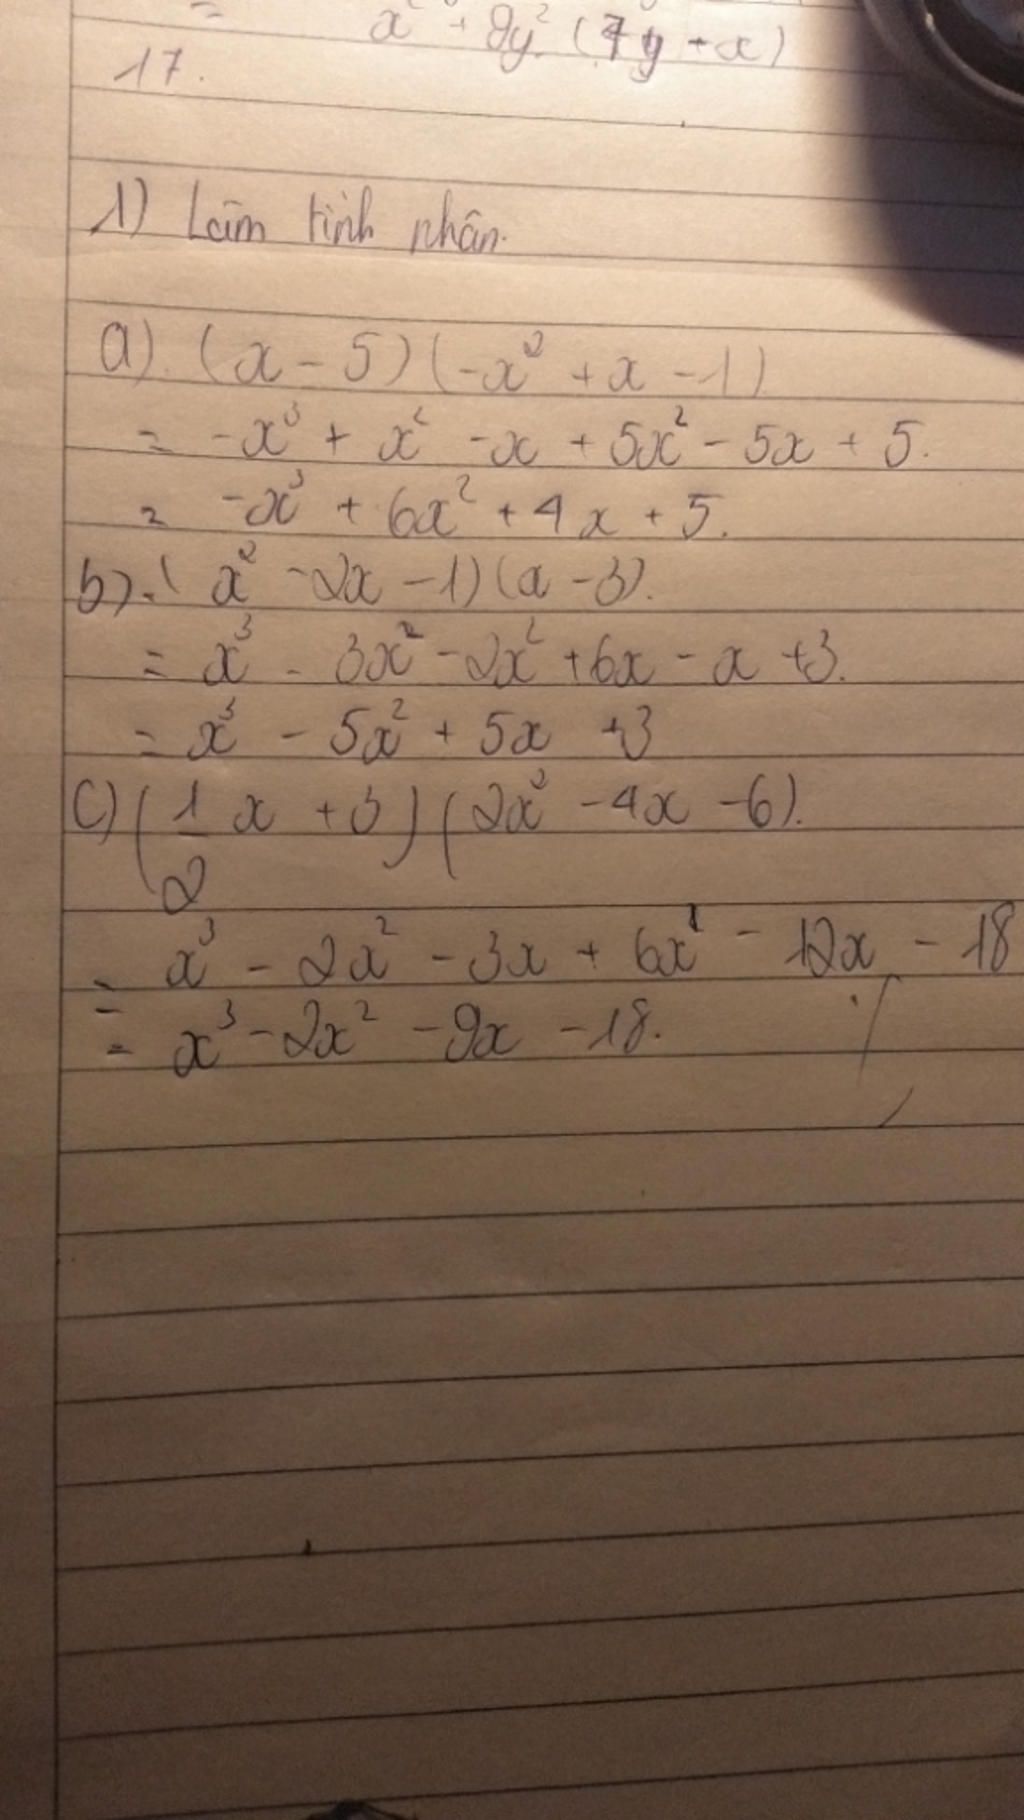 = x² + 9y² (7y + x)
17.
1) Làm tính nhân.
a) (x - 5)(-x² + x - 1)
= -x³ + x² - x + 5x² - 5x + 5.
= -x³ + 6x² + 4x + 5.
b) (x² - 2x - 1)(x - 3).
= x³ - 3x² - 2x² + 6x - x + 3.
= x³ - 5x² + 5x + 3
c) (1/2 x + 3)(2x² - 4x - 6).
= x³ - 2x² - 3x + 6x² - 12x - 18
= x³ - 2x² - 9x - 18.